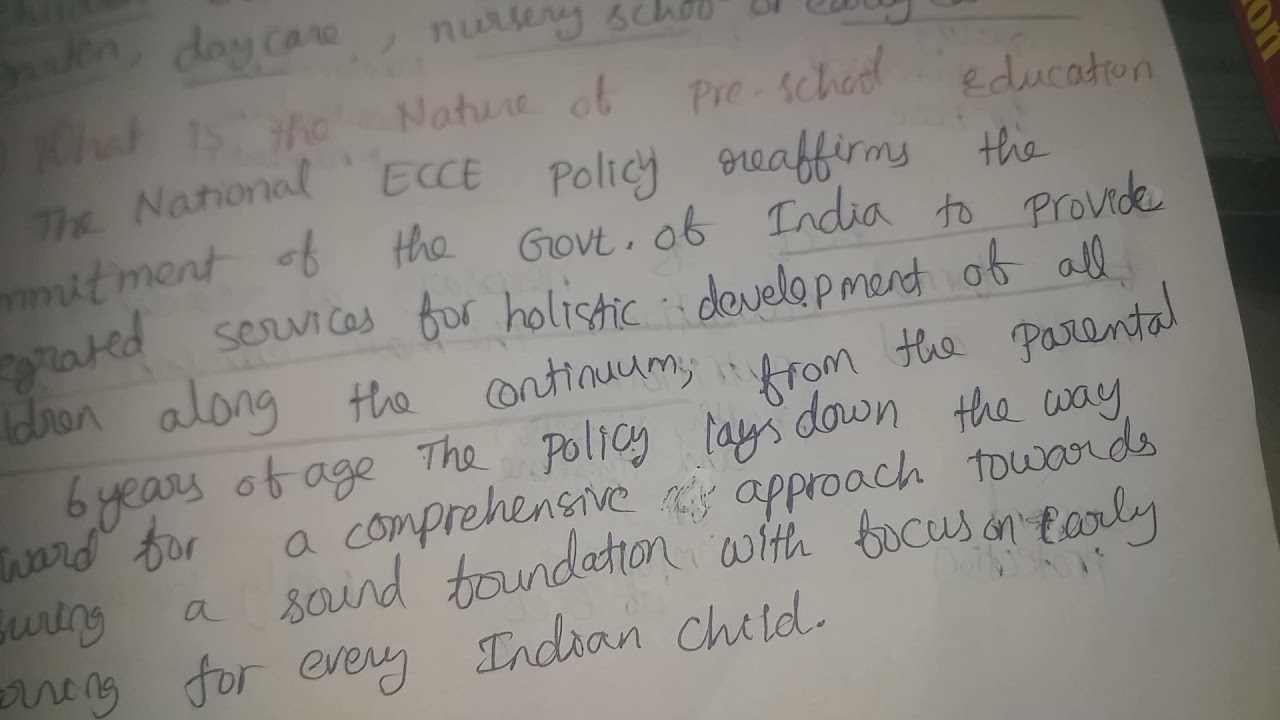 daycare, nursery school or early
What is the Nature of Pre-school education
The National ECCE Policy reaffirms the
mmitment of the Govt. of India to provide
egrated services for holistic development of all
ldren along the continuum, from the Parental
6 years of age The Policy lays down the way
ward for a comprehensive approach towards
suring a sound foundation with focus on Early
arning for every Indian child.
on